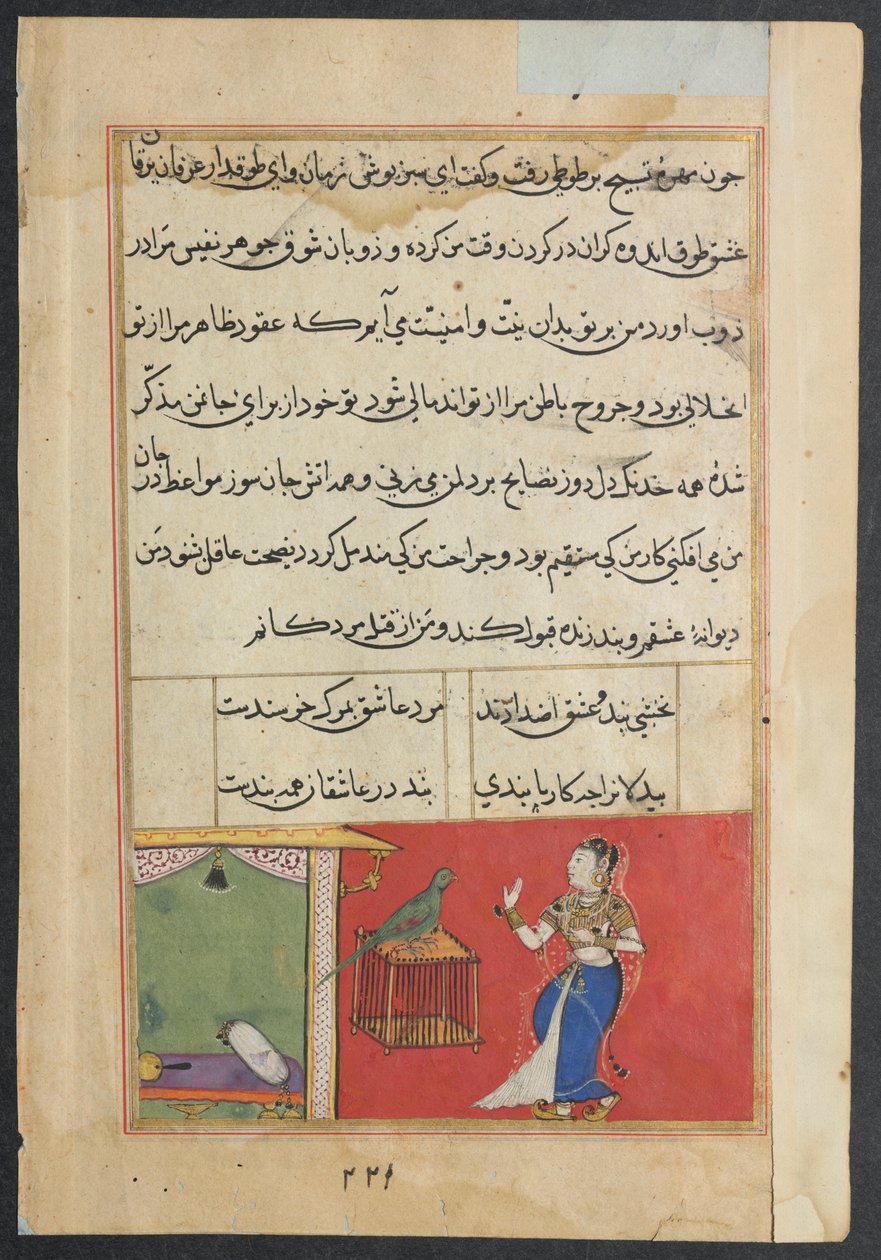 جون مهرهٔ تسبیح بر طوطی رفت و کفت ای سبزپوش زمان و ای طوقدار عرفان برقان
عشق طوق اندوه کران در کردن وقت من کرده و ذوبان شوق جوهر نفیس مرا در
ذوب اورد من بر تو بدان نیّت و امنیّت می آیم که عقود ظاهر مرا از تو
انحلالی بود و جروح باطن مرا از تو اندمالی شود تو خود از برای جان من مذکّر
شدهٔ همه خدنک دل دوز نصایح بر دل من می زنی و همه اتش جان سوز مواعظ در جان
من می افکنی کار من کی مستقیم بود و جراحت من کی مندمل کردد نصیحت عاقل بشنود من
دیوانهٔ عشقم و پند زنده قبول کند و من از قبل مردکانم
نخشبی پند و عشق اضدادند مرد عاشق بمرک خرسندست
بیدلانرا چه کار با پندی پند در عاشقان همه بندست
۲۲۶